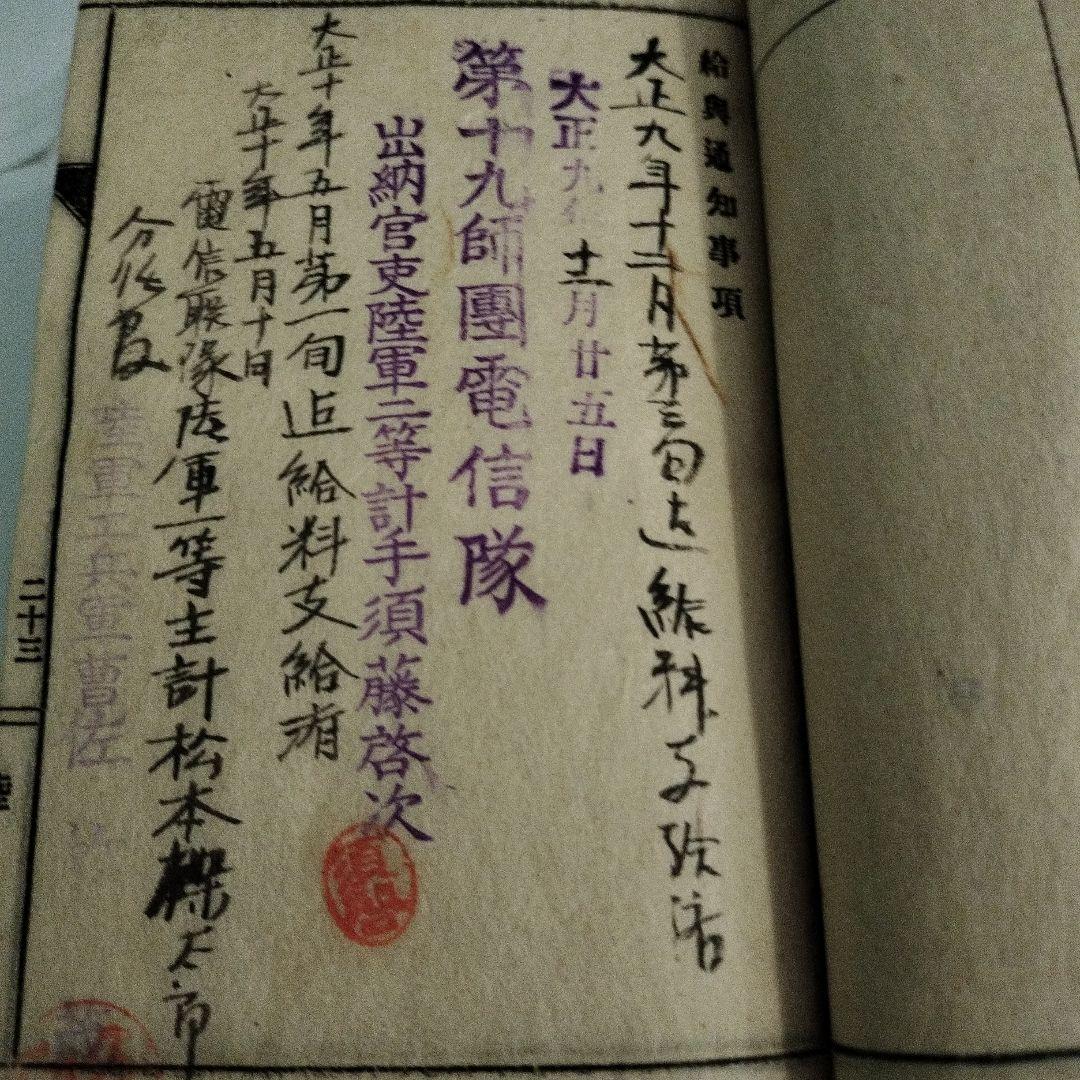 給與通知事項
大正九年十二月第三旬迄給料支給済
大正九年十二月廿五日
第十九師團電信隊
出納官吏陸軍二等計手須藤啓次
大正十年五月第一旬迄給料支給済
大正十年五月十日
電信聯隊陸軍一等主計松本
陸軍工兵軍曹佐
二十三